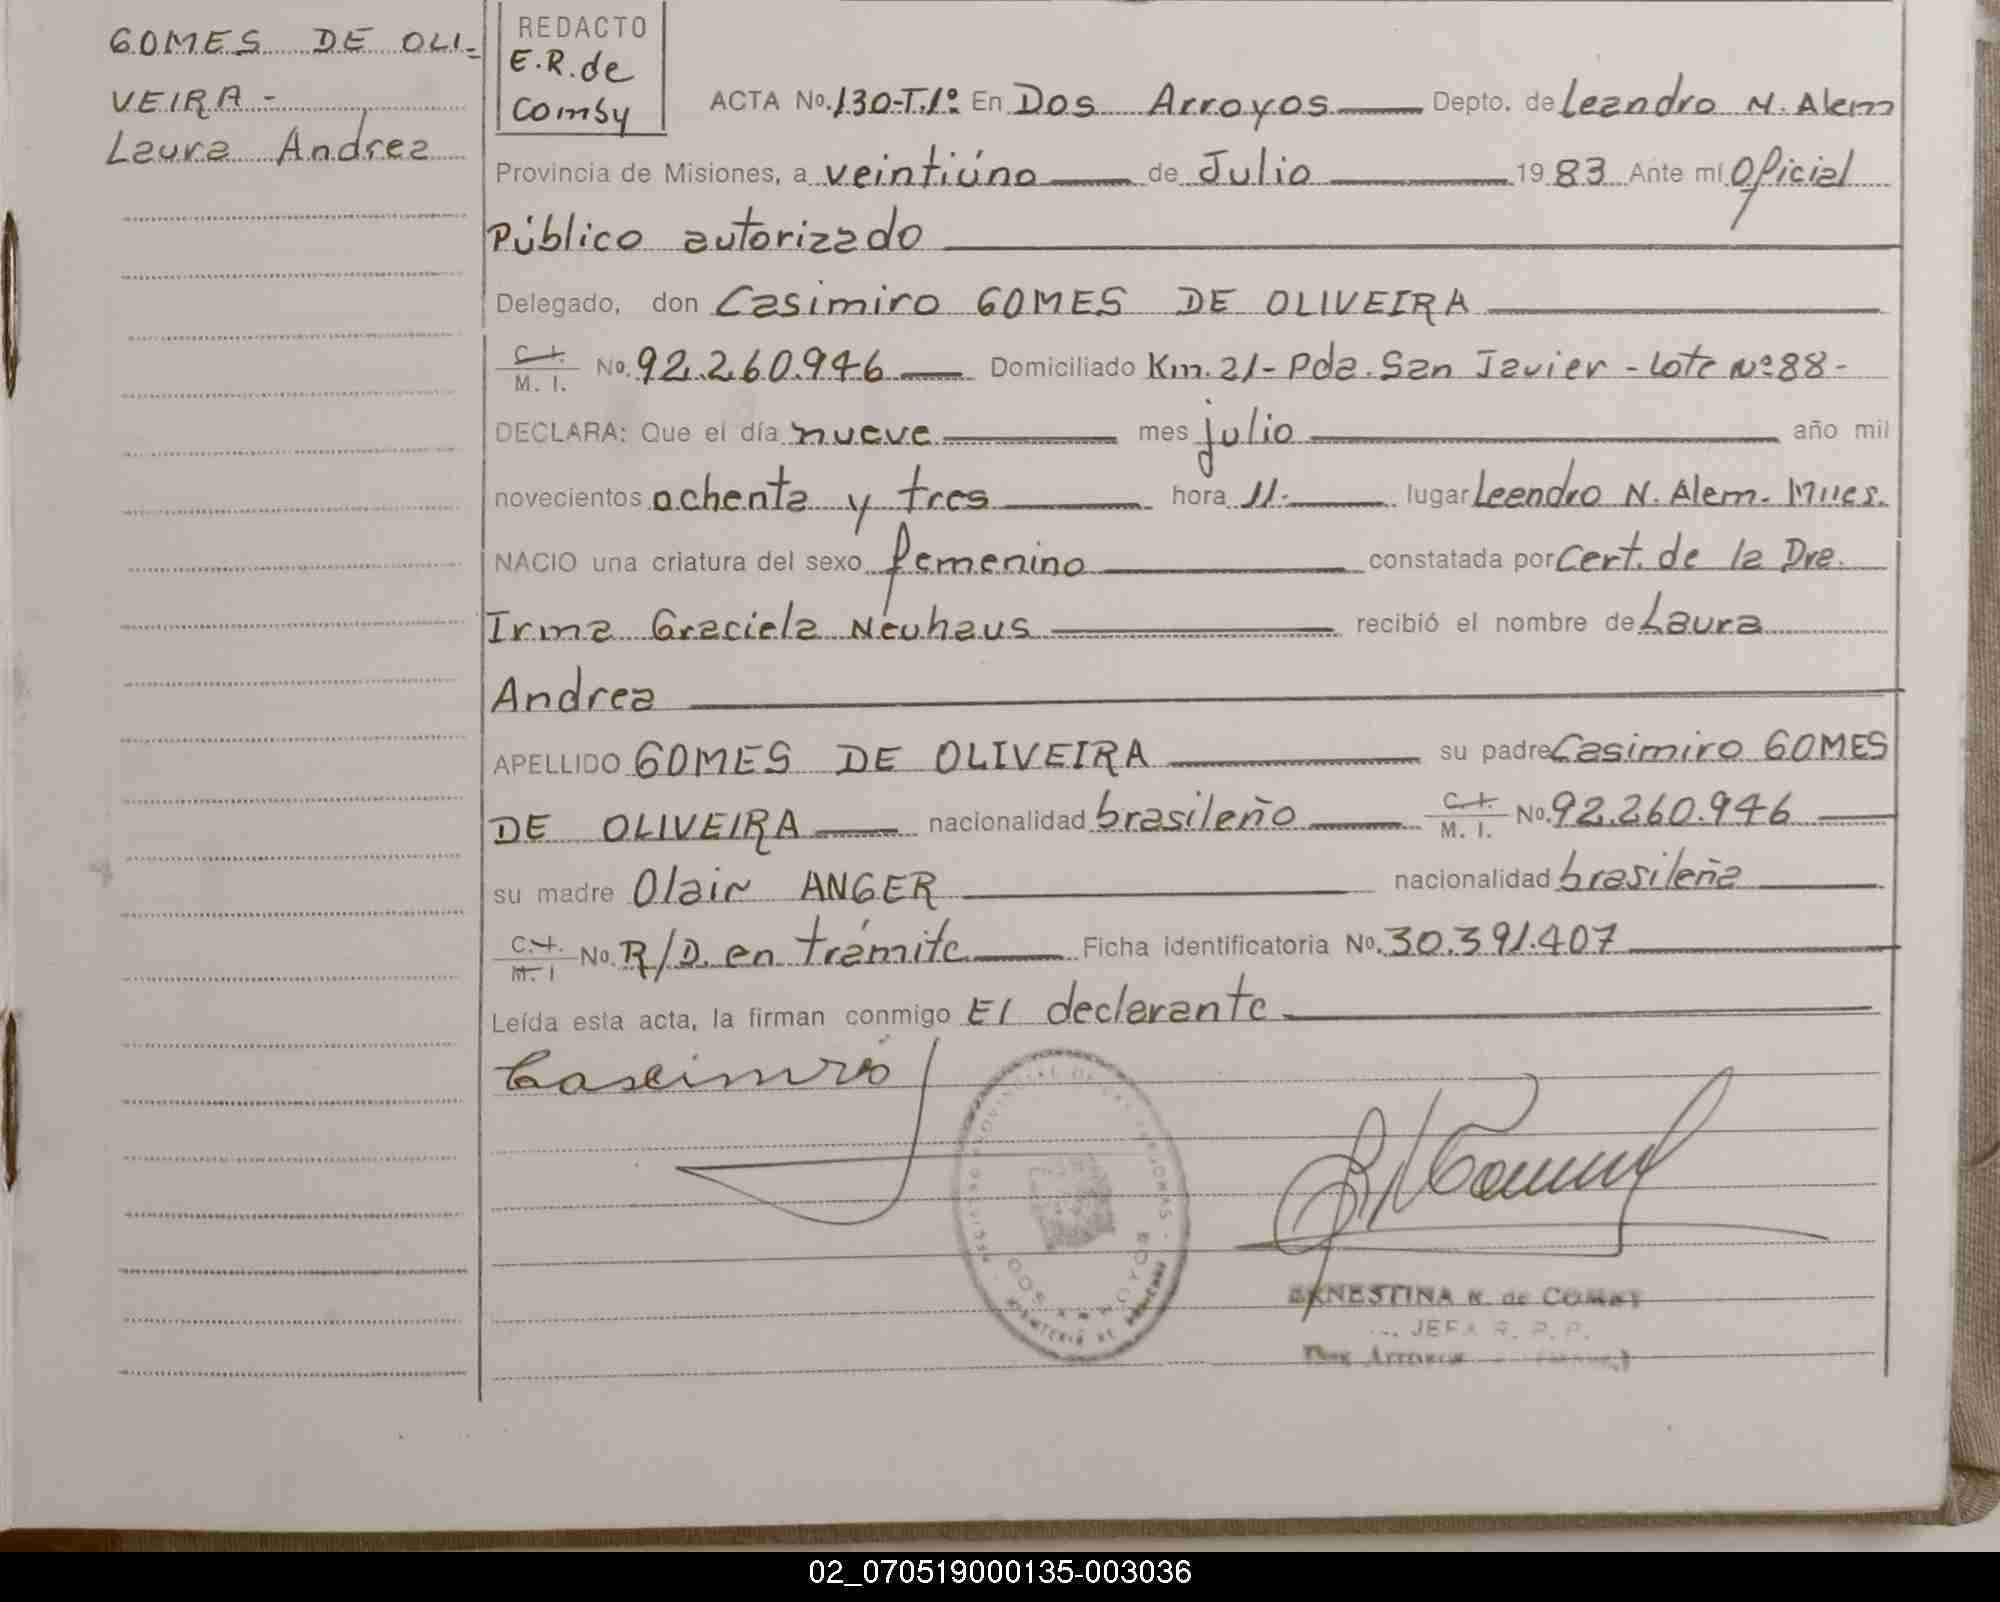 GOMES DE OLI-
VEIRA -
Laura Andrea
REDACTO
E.R. de
Comby
ACTA No. 130-T.1º En Dos Arroyos Depto. de Leandro N. Alem
Provincia de Misiones, a veintiúno de Julio 1983 Ante mí Oficial
Público autorizado
Delegado, don Casimiro GOMES DE OLIVEIRA
C.I. M. I. No. 92.260.946 Domiciliado Km. 21 - Pda. San Javier - Lote Nº 88 -
DECLARA: Que el día nueve mes julio año mil
novecientos ochenta y tres hora 11.- lugar Leandro N. Alem. Mnes.
NACIO una criatura del sexo femenino constatada por Cert. de la Dra.
Irma Graciela Neuhaus recibió el nombre de Laura
Andrea
APELLIDO GOMES DE OLIVEIRA su padre Casimiro GOMES
DE OLIVEIRA nacionalidad brasileño C.I. M. I. No. 92.260.946
su madre Olair ANGER nacionalidad brasileña
C.I. M. I No. R/D. en trámite Ficha identificatoria No. 30.391.407
Leída esta acta, la firman conmigo El declarante
Casimiro
DOS ARROYOS
ERNESTINA R. de COMBY
JEFA R. P. P.
Dos Arroyos
02_070519000135-003036